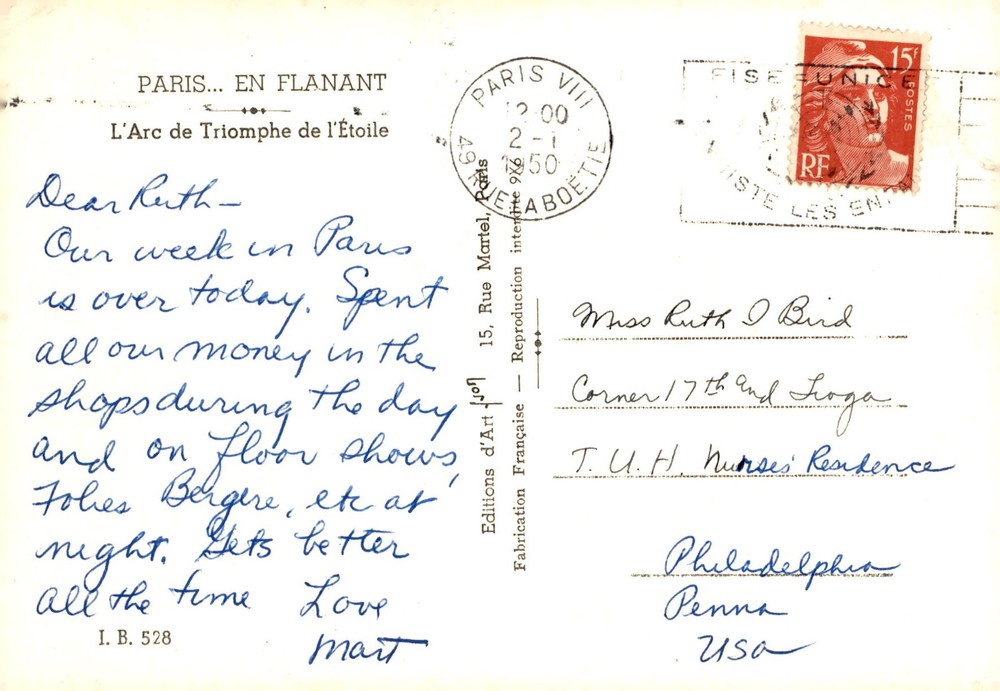 PARIS... EN FLANANT
L'Arc de Triomphe de l'Étoile
Dear Ruth—
Our week in Paris
is over today. Spent
all our money in the
shops during the day
and on floor shows,
Folies Bergere, etc at
night. Gets better
all the time Love
Mart
I. B. 528
Editions d'Art
15, Rue Martel, Paris
Fabrication Française — Reproduction interdite
PARIS VIII
12 00
2 - 1
1950
49 RUE LA BOËTIE
15F
POSTES
RF
LES
Miss Ruth I Bird
Corner 17th and Tioga
T. U. H. Nurses' Residence
Philadelphia
Penna
USA